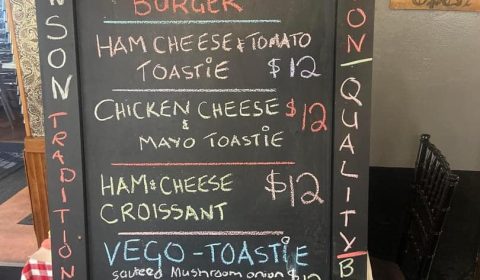 BURGER
HAM CHEESE & TOMATO
TOASTIE $12
CHICKEN CHEESE $12
&
MAYO TOASTIE
HAM & CHEESE $12
CROISSANT
VEGO-TOASTIE
sauteed Mushroom onion $12
SON
TRADITION
ON/QUALITY/B